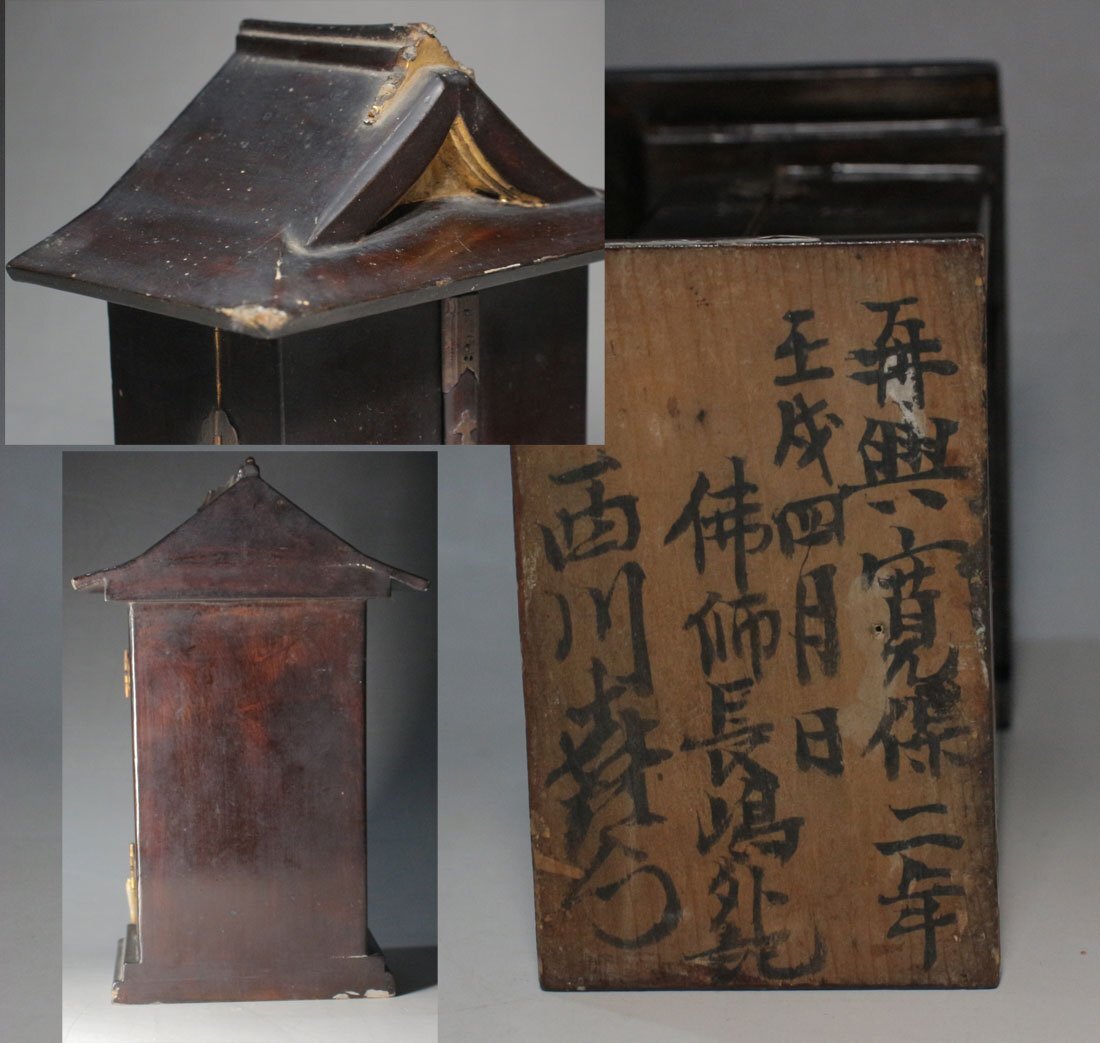 再興寛保二年
壬戌四月日
佛師長嶋
西川